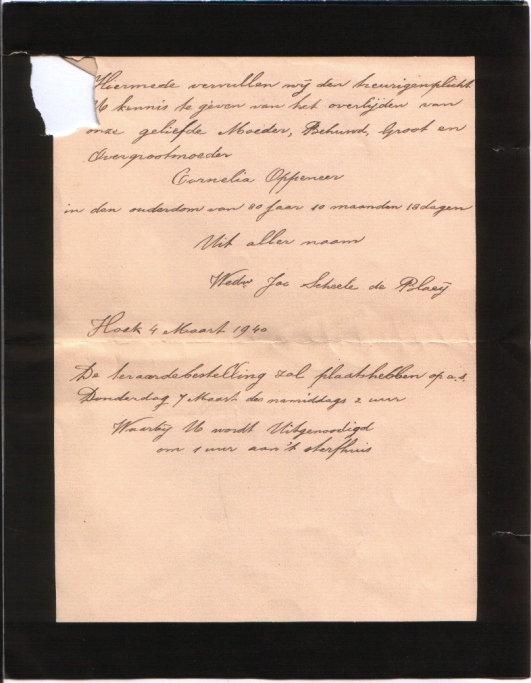 Hiermede vervullen wij den treurigenplicht
U kennis te geven van het overlijden van
onze geliefde Moeder, Behuwd, Groot en
Overgrootmoeder
Cornelia Oppeneer
in den ouderdom van 80 jaar 10 maanden 18 dagen
Uit aller naam
Wedw Jac Scheele de Blaeij
Hoek 4 Maart 1940
De teraardebestelling zal plaatshebben op a.s.
Donderdag 7 Maart des namiddags 2 uur
Waarbij U wordt Uitgenoodigd
om 1 uur aan't sterfhuis